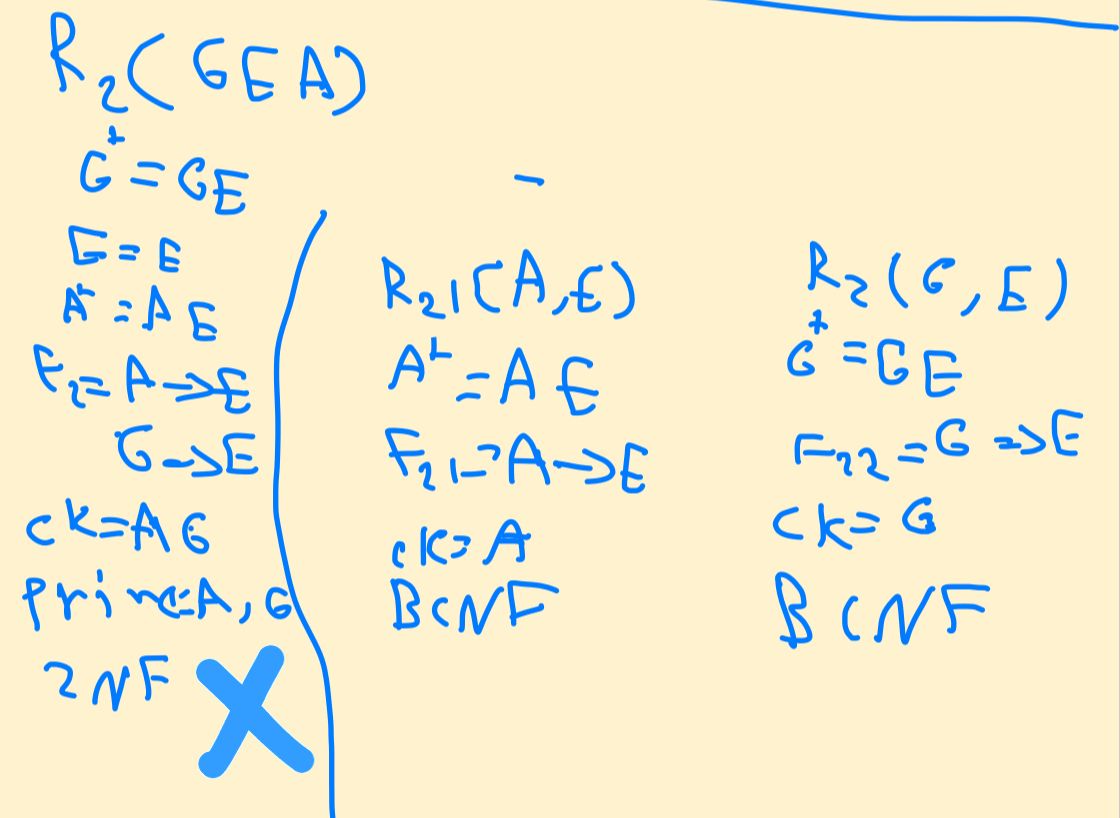 R₂(GEA)
G⁺=GE
E=E
A⁺=AE
F₂=A→E
G→E
CK=AG
prime=A,G
2NF X
R₂₁(A,E)
A⁺=AE
F₂₁=A→E
CK=A
BCNF
R₂(G,E)
G⁺=GE
F₂₂=G→E
CK=G
BCNF